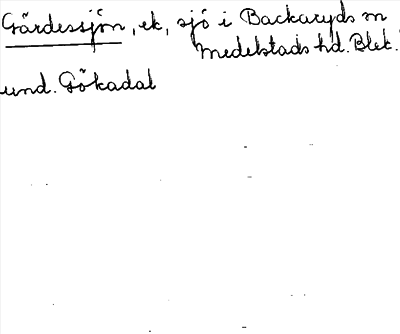 Gärdessjön, ek, sjö i Backaryds sn
Medelstads hd. Blek.
und. Gökadal